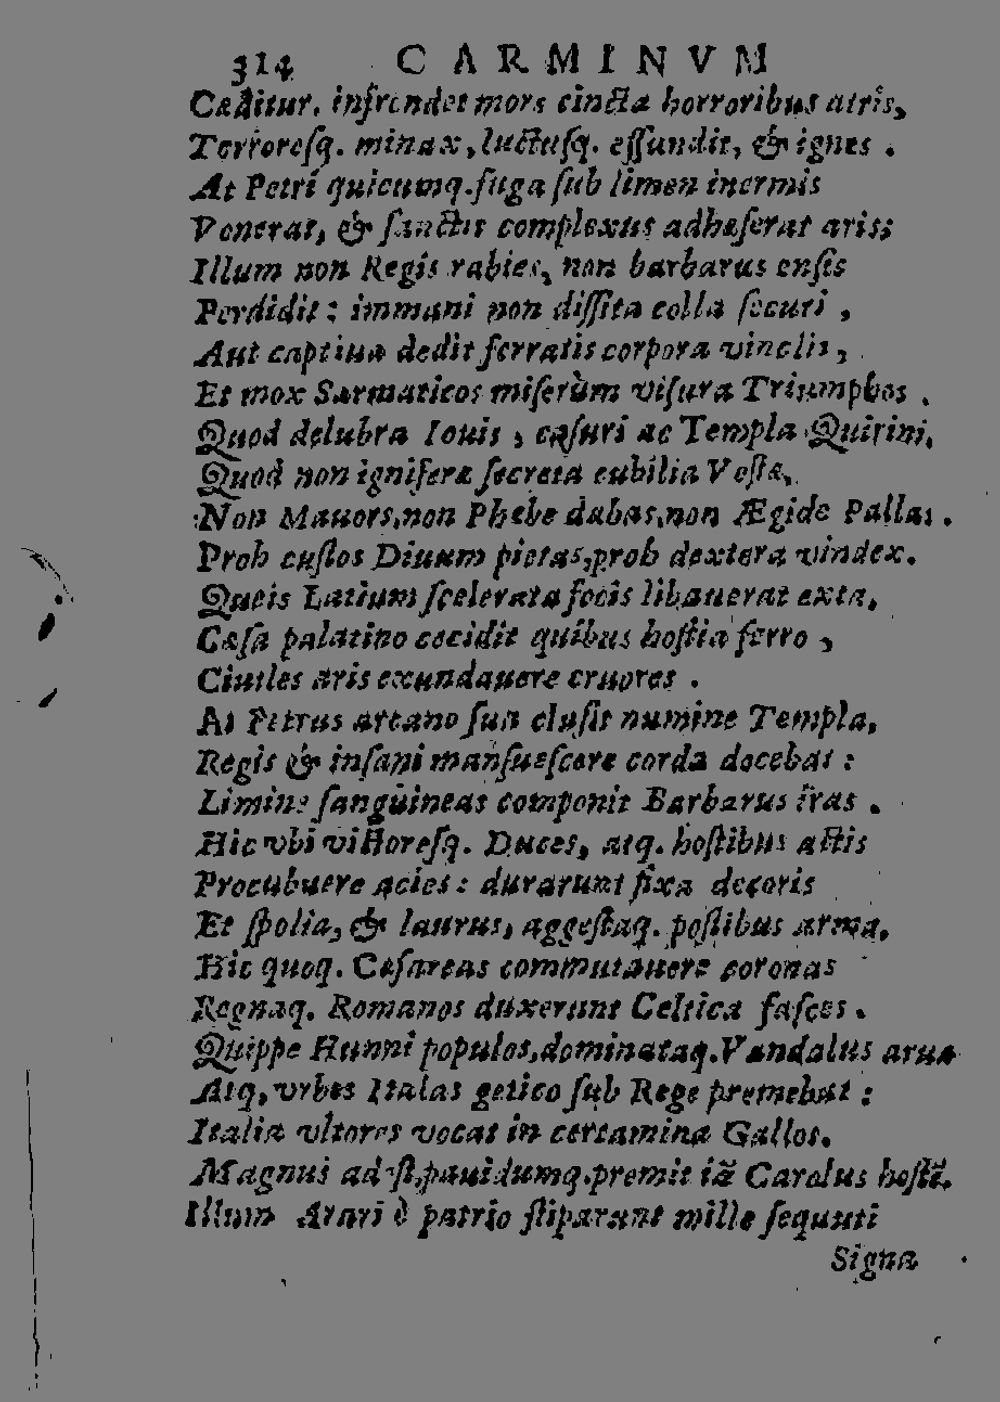 314 CARMINVM
Cæditur. infrendet mors cincta horroribus atris,
Terroresq. minax, luctusq. effundit, & ignes.
At Petri quicumq. fuga sub limen inermis
Venerat, & sanctis complexus adhæserat aris;
Illum non Regis rabies, non barbarus ensis
Perdidit: immani non dissita colla securi,
Aut captiua dedit ferratis corpora vinclis,
Et mox Sarmaticos miserùm visura Triumphos.
Quod delubra Iouis, casuri ac Templa Quirini,
Quod non igniferæ secreta cubilia Vestæ,
Non Mauors, non Phębe dabas, non Ægide Pallas.
Proh custos Diuum pietas, proh dextera vindex.
Queis Latium scelerata focis libauerat exta,
Cæsa palatino cecidit quibus hostia ferro,
Ciuiles aris exundauere cruores.
At Petrus arcano sua clusit numine Templa,
Regis & insani mansuescere corda docebat:
Limine sanguineas componit Barbarus iras.
Hic vbi victoresq. Duces, atq. hostibus actis
Procubuere acies: durarunt fixa decoris
Et spolia, & laurus, aggestaq. postibus arma,
Hic quoq. Cæsareas commutauere coronas
Regnaq. Romanos duxerunt Celtica fasces.
Quippe Hunni populos, dominataq. Vandalus arua
Atq, vrbes Italas getico sub Rege premebat:
Italia vltores vocat in certamina Gallos.
Magnus adest, pauidumq. premit iã Carolus hostẽ.
Illum Arari è patrio stiparunt mille sequuti
Signa